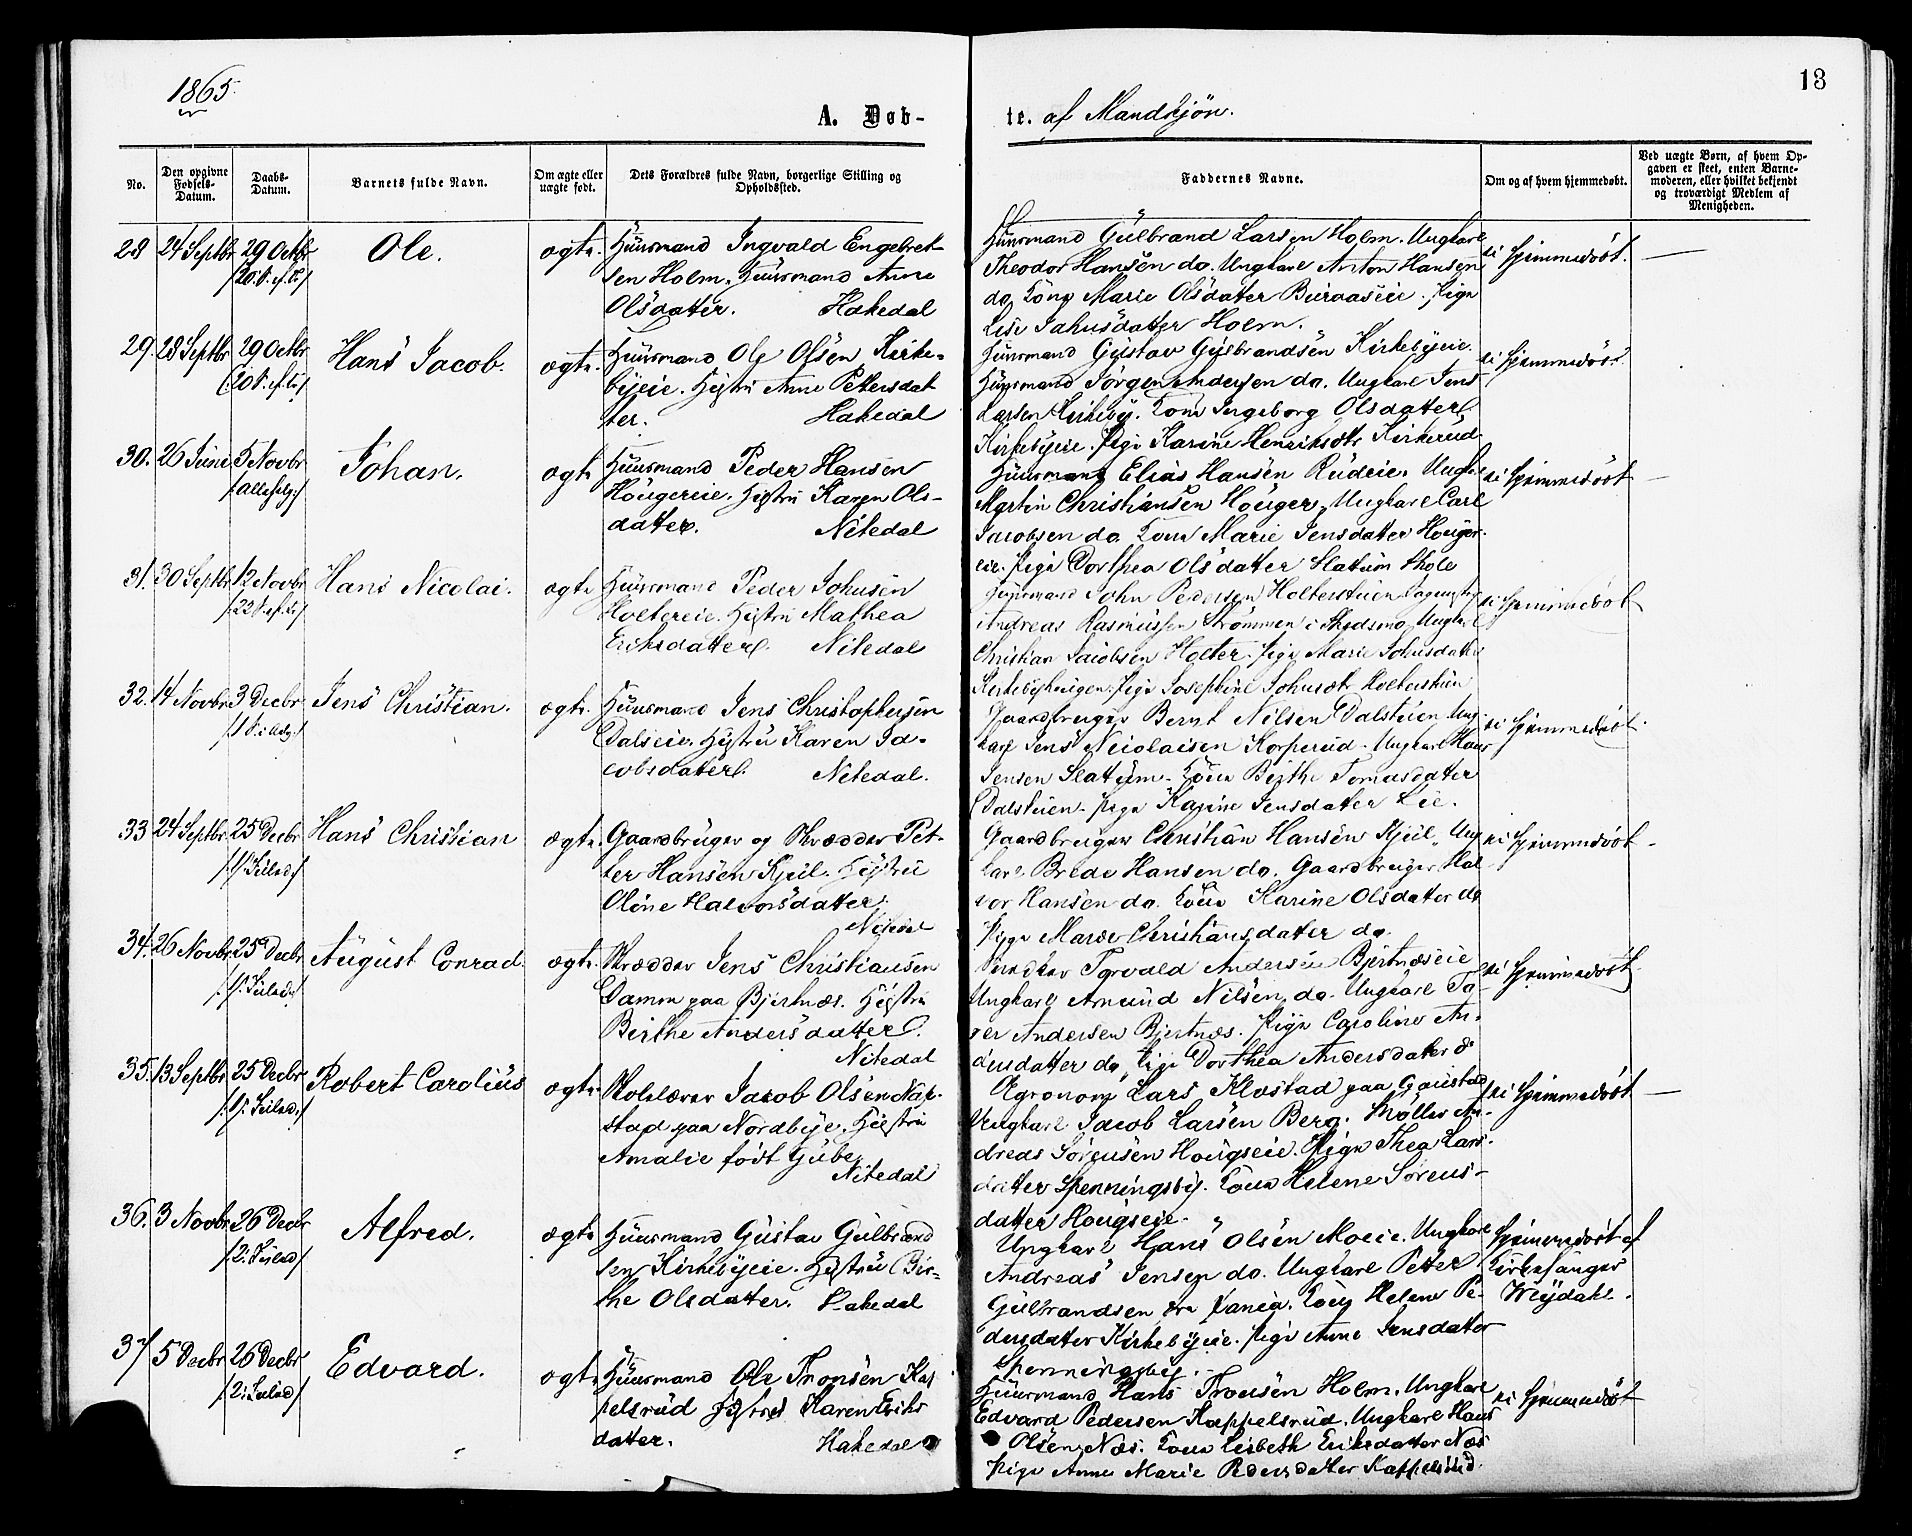 1865.
13
A. Døb-
te. af Mandkjön.
No.
Den opgivne Fødsels-Datum.
Daabs-Datum.
Barnets fulde Navn.
Om ægte eller uægte født.
Dets Forældres fulde Navn, borgerlige Stilling og Opholdssted.
Faddernes Navne.
Om og af hvem hjemmedøbt.
Ved uægte Børn, af hvem Opgaven er skeet, enten Barnemoderen, eller hvilket bekjendt og troværdigt Medlem af Menigheden.
28 24 Septbr 29 Octbr Ole. ægte. Huusmand Ingvald Engebret-
sen Holm. Huusmand Anne
Olsdatter. Hakedal
Huusmand Gulbrand Larsen Holm. Ungkarl
Theodor Hansen do. Ungkarl Anton Hansen
do. Kone Marie Olsdatter Pige
Lise Holm.
ei hjemmedöbt. —
29. 28 Septbr 29 Octbr Hans Jacob. ægte. Huusmand Ole Olsen Kirke-
byeie. Hustru Anne Petersdat
ter. Hakedal
Huusmand Gustav Gulbrandsen Kirkebyeie.
Huusmand Jörgen Andersen do. Ungkarl Jens
Larsen Kirkeby. Kone Ingeborg Olsdatter
Kirkebyeie. Pige Karine Henriksdtr Kirkerud.
ei hjemmedöbt
30. 26 Juni 5 Novbr Johan. ægte Huusmand Peder Hansen
Höugereie. Hustru Karen Ols-
datter. Nitedal
Huusmand Elias Hansen Rudeie. Ungkarl
Martin Christiansen Höuger. Ungkarl Carl
Jacobsen do. Kone Marie Jensdatter Houger-
eie. Pige Dorthea Olsdatter Slatum Skole
ei hjemmedöbt —
31. 30 Septbr 12 Novbr Hans Nicolai. ægte Huusmand Peder Johnsen
Holtereie. Hustru Mathea
Eriksdatter. Nitedal
Huusmand John Pedersen Holtersteien
Andreas Rasmussen Strömmen i Skedsmo. Ungkarl
Christian Jacobsen Holter. Pige Marie Johnsdatter
Kirkebyhaugen. Pige Josephine Johnsdtr Holtersteien
ei hjemmedöbt
32. 14 Novbr 3 Decbr Jens Christian. ægte. Huusmand Jens Christophersen
Dalseie. Hustru Karen Ja-
cobsdatter. Nitedal.
Gaardbruger Bernt Nilsen Dalsteien. Ung-
karl Jens Nicolaisen Korperud. Ungkarl Hans
Jensen Slatum. Kone Birthe Tomasdatter
Dalsteien. Pige Karine Jensdatter Lie.
ei hjemmedöbt.
33 24 Septbr 25 Decbr Hans Christian ægte. Gaardbruger og Skrædder Pet-
ter Hansen Kjul. Hustru
Oline Halvorsdatter.
Nitedal
Gaardbruger Christian Hansen Kjul. Ung
karl Brede Hansen do. Gaardbruger Hal-
vor Hansen do. Kone Karine Olsdatter do
Pige Maren Christiansdatter do.
ei hjemmedöbt —
34. 26 Novbr 25 Decbr August Conrad. ægte. Skrædder Jens Christiansen
Damm paa Bjertnæs. Hustru
Birthe Andersdatter.
Nitedal
Torvald Andersen Bjertnæseie
Ungkarl Amund Nilsen do. Ungkarl
Andersen Bjertnæs. Pige Caroline An-
dersdatter do. Pige Dorthea Andersdatter do
ei hjemmedöbt
35. 13 Septbr 25 Decbr Robert Carolius ægte. Skolelærer Jacob Olsen Nap-
stad paa Nordbye. Hustru
Amalie födt Gube.
Nitedal
Agronom Lars Klostad paa Gaustad
Ungkarl Jacob Larsen Berg. Möller An-
dreas Sörensen Hougseie. Pige Thea Lars-
datter Spenningsby. Kone Helene Sörens-
datter Hougseie.
ei hjemmedöbt —
36. 3 Novbr 26 Decbr Alfred. ægte Huusmand Gustav Gulbrand
sen Kirkebyeie. Hustru Bir-
the Olsdatter. Hakedal
Ungkarl Hans Olsen Moeie. Ungkarl
Andreas Jensen do. Ungkarl Petter
Gulbrandsen Kone Helene Pe-
dersdatter Kirkebyeie. Pige Anne Jensdatter
Spenningsby.
hjemmedöbt af
Kirkesanger
Weydahl.
37 5 Decbr 26 Decbr Edvard. ægte Huusmand Ole Tronsen Kap
pelsrud Hustru Karen Eriks
datter. Hakedal
Huusmand Hans Tronsen Holm. Ungkarl
Edvard Pedersen Kappelsrud. Ungkarl Hans
Olsen Næs. Kone Lisbeth Eriksdatter Næs
Pige Anne Marie Pedersdatter Kappelsrud.
ei hjemmedöbt